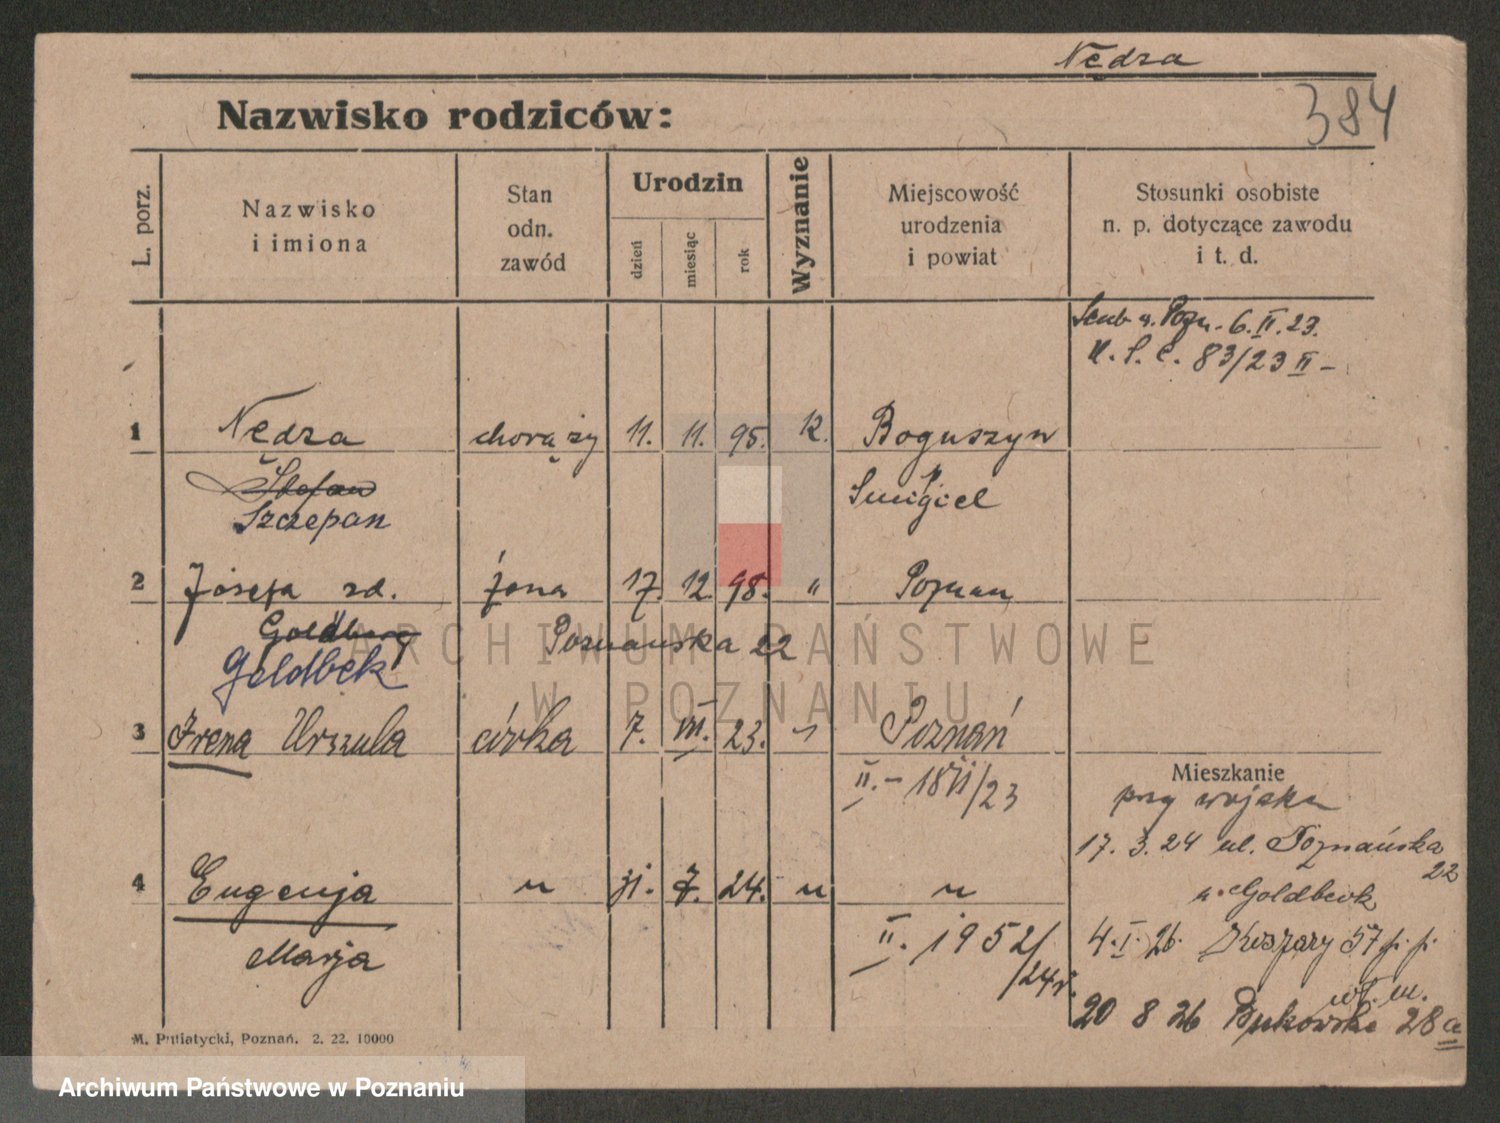 Nędza
384
Nazwisko rodziców:
L. porz.
Nazwisko
i imiona
Stan
odn.
zawód
Urodzin
dzień
miesiąc
rok
Wyznanie
Miejscowość
urodzenia
i powiat
Stosunki osobiste
n. p. dotyczące zawodu
i t. d.
w. Pozn. 6.II.23.
U. S. C. 83/23 II
1 Nędza chorąży 11. 11. 95. k. Boguszyn
Stefan Śmigiel
Szczepan
2 Józefa zd. żona 17. 12. 98. " Poznań
Goldberg Poznańska 22
Goldbek
3 Irena Urszula córka 7. VII. 23. " Poznań
II. - 18VII/23
Mieszkanie
przy wojsku
17. 3. 24 ul. Poznańska
22
4 Eugenja " 31. 7. 24. " "
u. Goldbeck
Marja II. 1952/
/24r.
4. I. 26. Koszary 57 p. p.
wl. m.
20 8 26 Bukowska 28a
M. Putiatycki, Poznań. 2. 22. 10000
ARCHIWUM PAŃSTWOWE
W POZNANIU
Archiwum Państwowe w Poznaniu